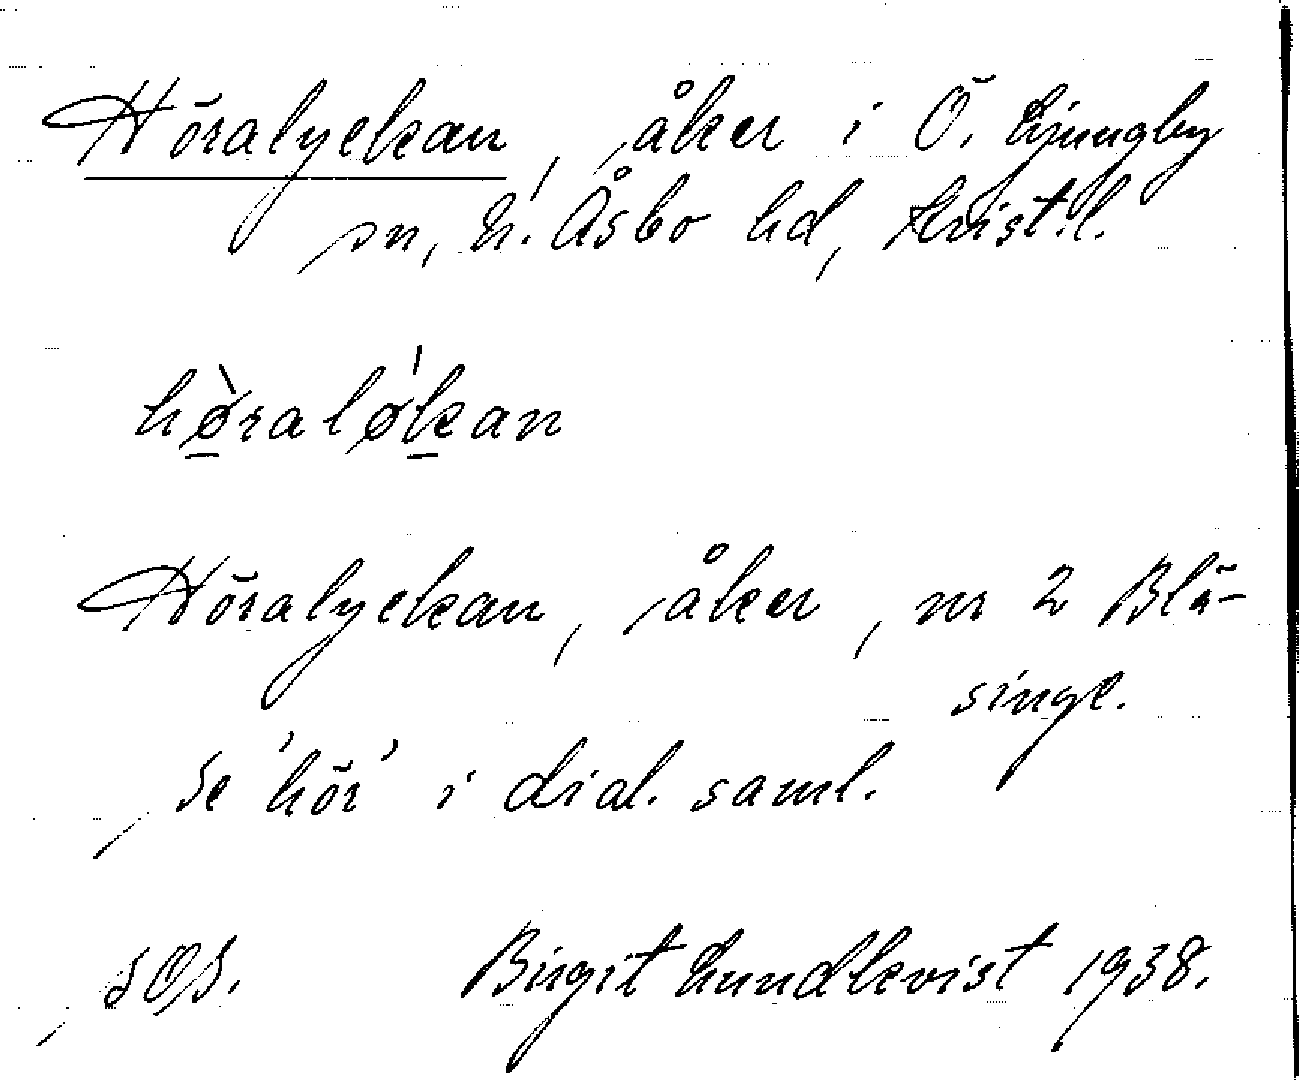 Höralyckan, åker i Ö. Ljungby
sn, N. Åsbo hd, Krist.l.
hø̀raløkan
Höralyckan, åker, nr 2 Blä-
singe.
se 'hör' i dial. saml.
SOS. Birgit Lundkvist 1938.